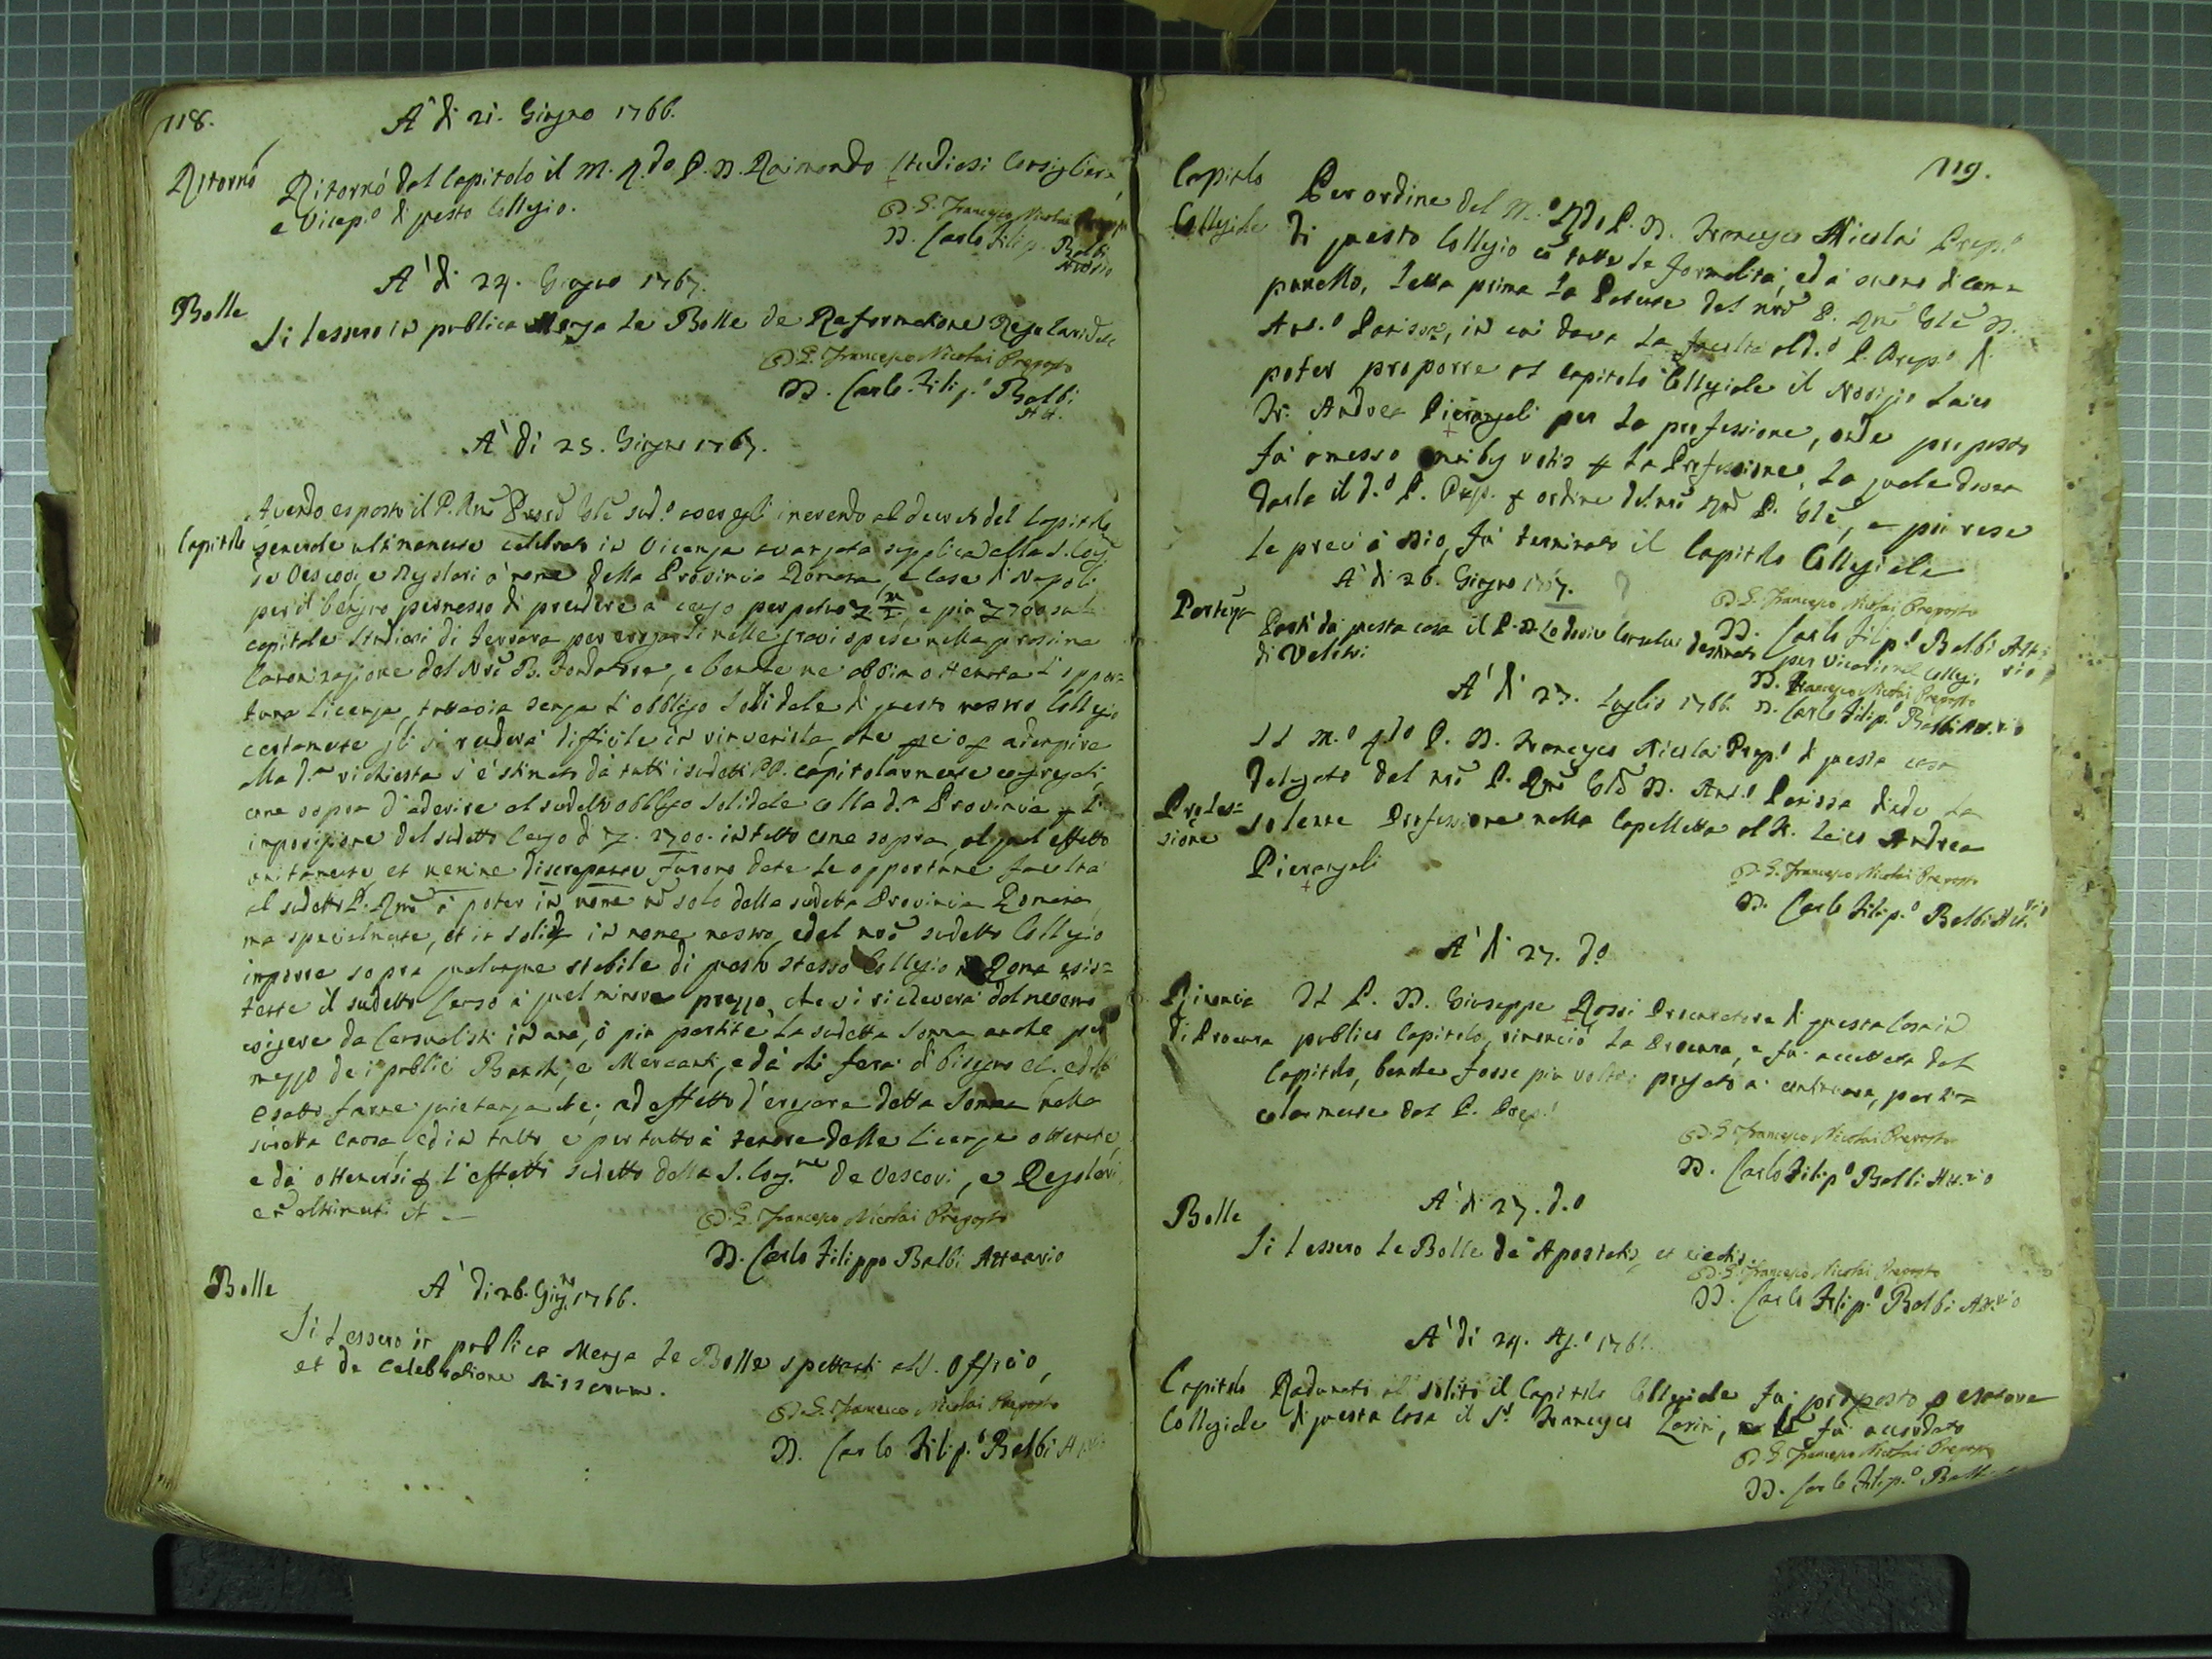 118.
A' di 21. Giugno 1766.
Ritorno
Ritornò dal Capitolo il M. R.do P. D. Raimondo Studiosi Consigliere,
e Vicep.o di questo Collegio.
D. G. Francesco Nicolai Preposto
D. Carlo Filip. Balbi
Attuario
A' di 24. Giugno 1767.
Bolle
Si lessero in publica Mensa le Bolle de Reformatione Regularium &c
D. G. Francesco Nicolai Preposto
D. Carlo Filip.o Balbi
Att.
A' di 25. Giugno 1767.
Avendo esposto il P. Rmo Prov̄ Gle̅ sud.o aver egli inerendo al decreto del Capitolo
Capitolo
generale ultimamente celebrato in Vicenza avanzata supplica alla S. Cog.
de Vescovi, e Regolari a nome della Provincia Romana, e Case di Napoli
per il benigno permesso di prendere a censo perpetuo e più 700
capitale Studiosi di Ferrara per erogarli nelle gravi spese nella prossima
Canonizazione del Nrō B. Fondatore, e benche ne abbia ottenuta l'oppor=
tuna licenza, tuttavia senza l'obbligo Solidale di questo nostro Collegio
certamente gli si renderà difficile in rinvenirla, che perciò p adempire
alla d.a richiesta s'è stimato da tutti i sudetti PP. capitolarmente congregati
come sopra d'aderire al sudetto obbligo Solidale colla d.a Provincia p l'
imposizione del sudetto Censo di 2700. in tutto come sopra, al qual effetto
unitamente et nemine discrepante furono date le opportune facoltà
al sudetto P. Rmo di poter in nome nō solo della sudetta Provincia Romana,
ma specialmente, et in solidum in nome nostro, e del nrō sudetto Collegio
imporre sopra qualunque stabile di questo stesso Collegio in Roma esis=
tente il sudetto Censo a quel minore prezzo, che vi si
esigere da Censualisti in una, o più partite la sudetta Somma anche per
mezzo de i publici Banchi, e Mercanti, e da chi farà di bisogno
esatto farne quietanza &c: ad effetto d'erogare detta Somma nella
sudetta Causa, ed in tutto, e per tutto a tenore delle licenze ottenute,
e da ottenersi p l'effetto sudetto dalla S. Cog.ne de Vescovi, e Regolari,
D. G. Francesco Nicolai Preposto
D. Carlo Filippo Balbi Attuario
Bolle
A' di 26. Giug.no 1766.
Si lessero in publica Mensa le Bolle spettanti al S. Officio,
et de Celebratione Missarum.
D. G. Francesco Nicolai Preposto
D. Carlo Filip.o Balbi
119.
Capitolo
Collegiale
Per ordine del M.o Rdo P. D. Francesco Nicolai Prep.o
di questo Collegio co̅ tutte le formalità, ed a suono di cam=
panello, letta prima la Patente del nrō P. Rm̄o Gle̅ D.
Ant.o Parisoni, in cui dava la facoltà al d.o P. Prep.o di
poter proporre al Capitolo Collegiale il Novizio Laico
Fr. Andrea Pierangeli per la professione, onde proposto
fù amesso votis p la Professione, la quale dovea
darla il d.o P. Prep. p ordine del nrō Rm̄o P. Gle̅, e più rese
le grazie a Dio, fu terminato il Capitolo Collegiale
D. G. Francesco Nicolai Preposto
D. Carlo Filip.o Balbi Attuario
A' di 26. Giugno 1767.
Partenza
Partì da questa casa il P. D. Lodovico destinato per Vicario nel Collegio
di Velletri
D. Francesco Nicolai Preposto
D. Carlo Filip.o Balbi Att.rio
A' di 27. Luglio 1766.
Il M.o R.do P. D. Francesco Nicolai Prep.o di questa casa
Delegato dal nrō P. Rm̄o Gle̅ D. Ant.o diede la
Profes=
sione
solenne Professione nella Capelletta al Fr. Laico Andrea
Pierangeli
D. G. Francesco Nicolai Preposto
D. Carlo Filip.o Balbi Att.rio
A' di 27. do
Rinuncia
di Procura
Il P. D. Giuseppe Rossi Procuratore di questa Casa in
publico Capitolo, rinunciò la Procura, e fu accettata dal
Capitolo, benche fosse più volte pregato a continuare, parti=
colarmente dal P. Prep.o
D. G. Francesco Nicolai Preposto
D. Carlo Filip.o Balbi Att.rio
A' di 27. d.o
Bolle
Si lessero le Bolle de Apostatis, et eiectis.
D. G. Francesco Nicolai Preposto
D. Carlo Filip.o Balbi Att.rio
A' di 24. Ag.o 1766.
Capitolo
Collegiale
Radunato al solito il Capitolo Collegiale fu proposto p
di questa Casa il S.r Francesco fù accordato
D. G. Francesco Nicolai Preposto
D. Carlo Filip.o Balbi